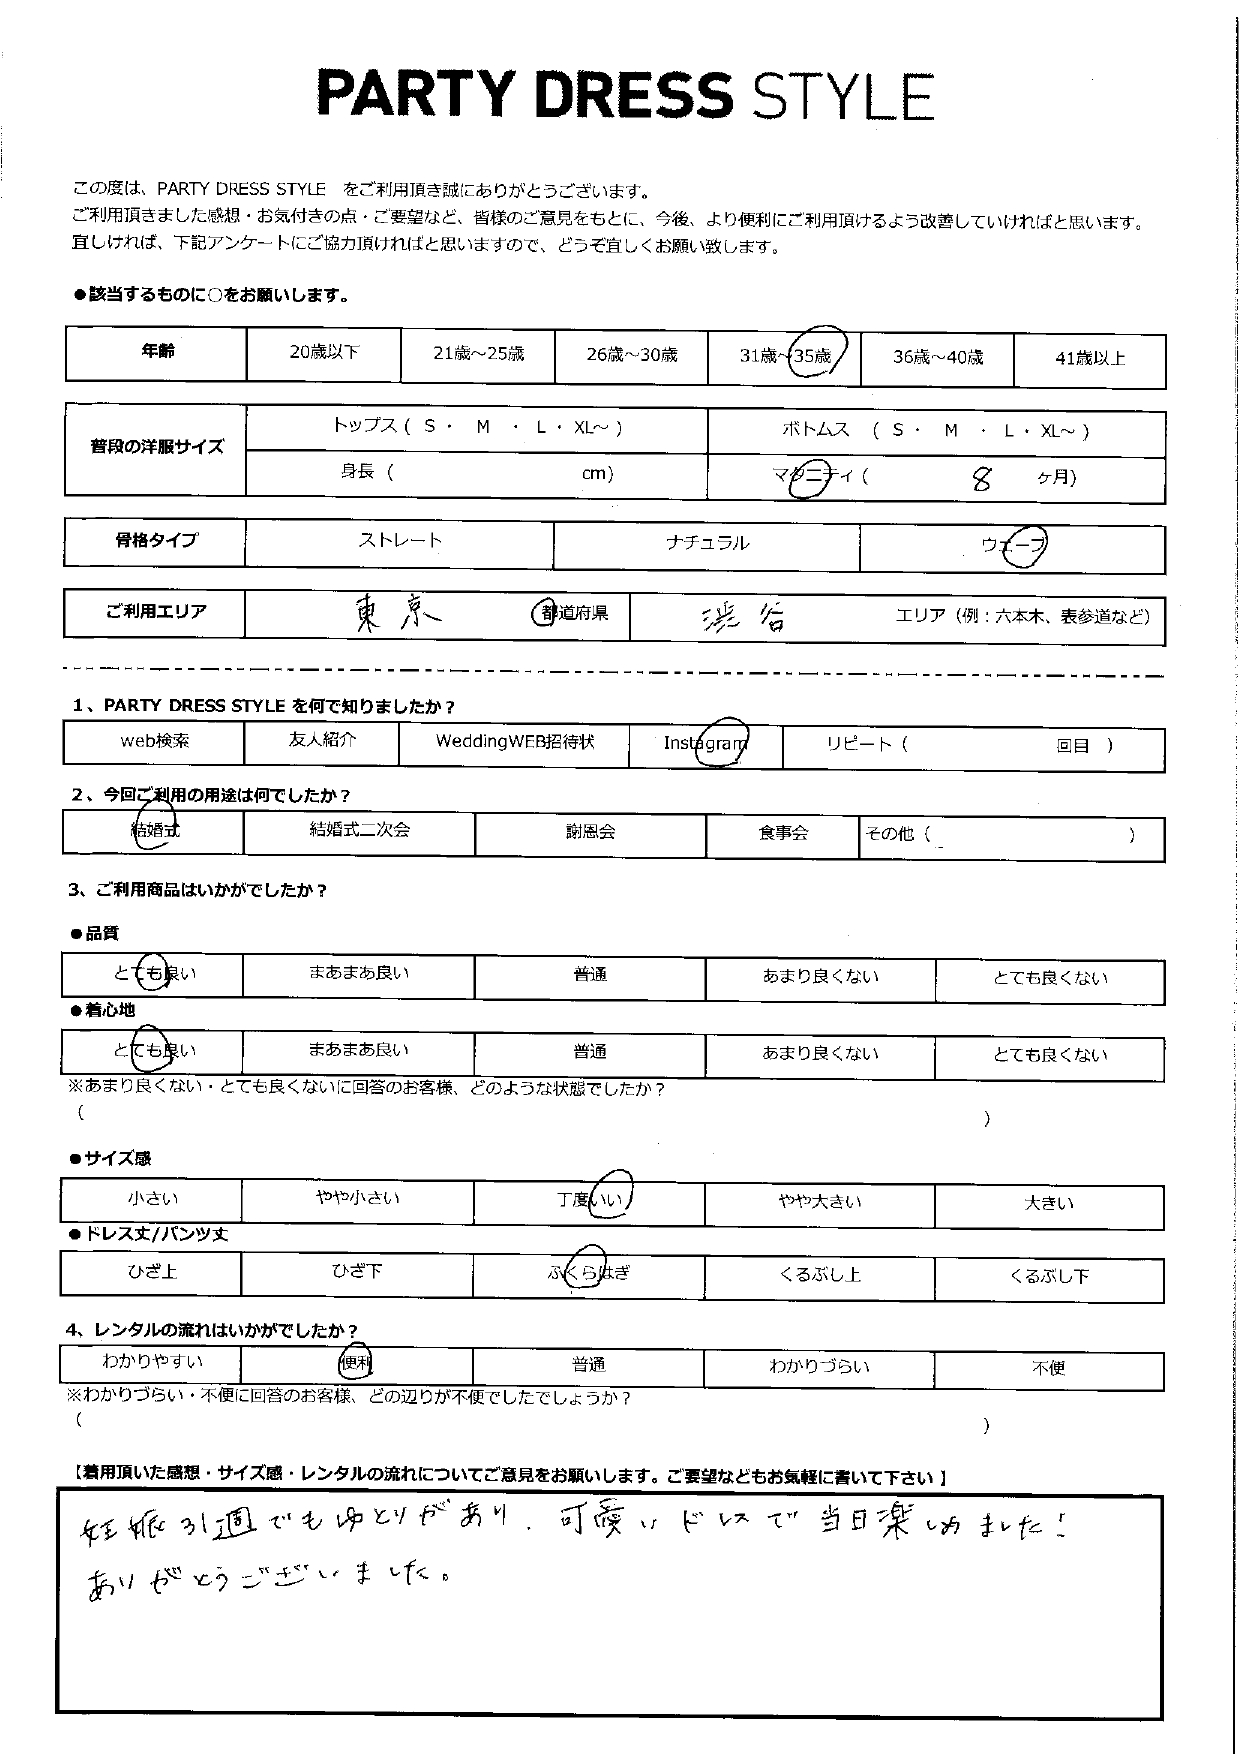 PARTY DRESS STYLE
この度は、PARTY DRESS STYLE をご利用頂き誠にありがとうございます。
ご利用頂きました感想・お気付きの点・ご要望など、皆様のご意見をもとに、今後、より便利にご利用頂けるよう改善していければと思います。
宜しければ、下記アンケートにご協力頂ければと思いますので、どうぞ宜しくお願い致します。
●該当するものに○をお願いします。
年齢 20歳以下 21歳～25歳 26歳～30歳 31歳～35歳 36歳～40歳 41歳以上
普段の洋服サイズ トップス ( S ・ M ・ L ・ XL～ ) ボトムス ( S ・ M ・ L ・ XL～ )
身長 ( cm) マタニティ ( 8 ヶ月)
骨格タイプ ストレート ナチュラル ウェーブ
ご利用エリア 東京 都道府県 渋谷 エリア（例：六本木、表参道など）
1、PARTY DRESS STYLE を何で知りましたか？
web検索 友人紹介 WeddingWEB招待状 Instagram リピート ( 回目 )
2、今回ご利用の用途は何でしたか？
結婚式 結婚式二次会 謝恩会 食事会 その他 ( )
3、ご利用商品はいかがでしたか？
●品質
とても良い まあまあ良い 普通 あまり良くない とても良くない
●着心地
とても良い まあまあ良い 普通 あまり良くない とても良くない
※あまり良くない・とても良くないに回答のお客様、どのような状態でしたか？
( )
●サイズ感
小さい やや小さい 丁度いい やや大きい 大きい
●ドレス丈/パンツ丈
ひざ上 ひざ下 ふくらはぎ くるぶし上 くるぶし下
4、レンタルの流れはいかがでしたか？
わかりやすい 便利 普通 わかりづらい 不便
※わかりづらい・不便に回答のお客様、どの辺りが不便でしたでしょうか？
( )
【着用頂いた感想・サイズ感・レンタルの流れについてご意見をお願いします。ご要望などもお気軽に書いて下さい】
妊娠31週でもゆとりがあり、可愛いドレスで当日楽しめました！
ありがとうございました。